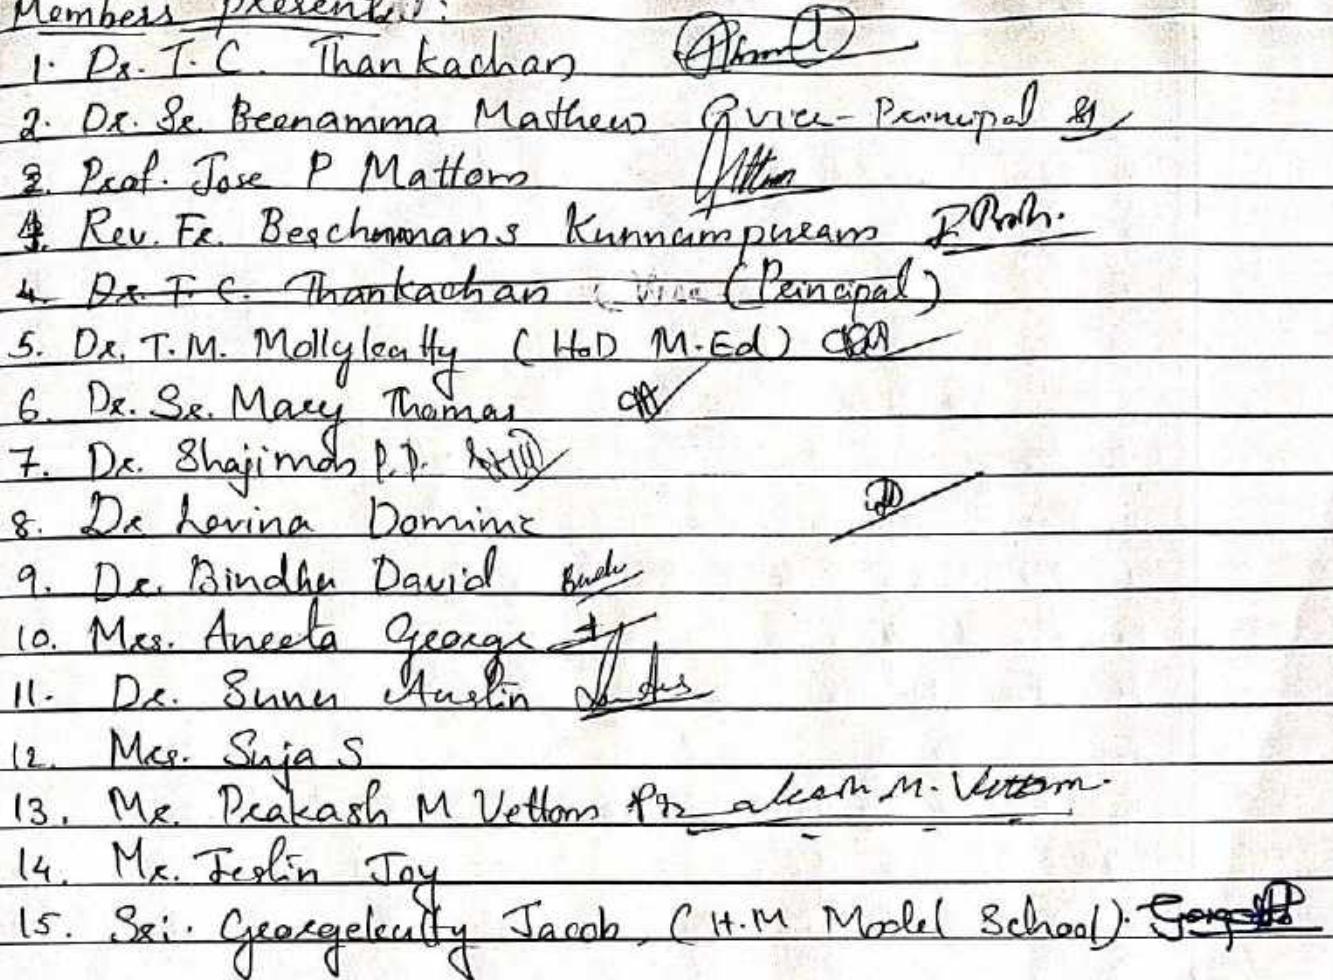 Members present:
1. Dr. T. C. Thankachan
2. Dr. Sr. Beenamma Mathew Vice-Principal
3. Prof. Jose P Mattom
4. Rev. Fr. Berchmans Kunnumpuram
4. Dr. T. C. Thankachan (Vice (Principal)
5. Dr. T.M. Mollykutty (HoD M.Ed)
6. Dr. Sr. Mary Thomas
7. Dr. Shajimon P.P.
8. Dr Lovina Dominic
9. Dr. Bindhu David Bindu
10. Mrs. Aneeta George
11. Dr. Sunu Austin
12. Mrs. Suja S
13. Mr. Prakash M Vettom Prakash M. Vettom.
14. Mr. Jeslin Joy
15. Sri. Georgekutty Jacob, (H.M Model School).